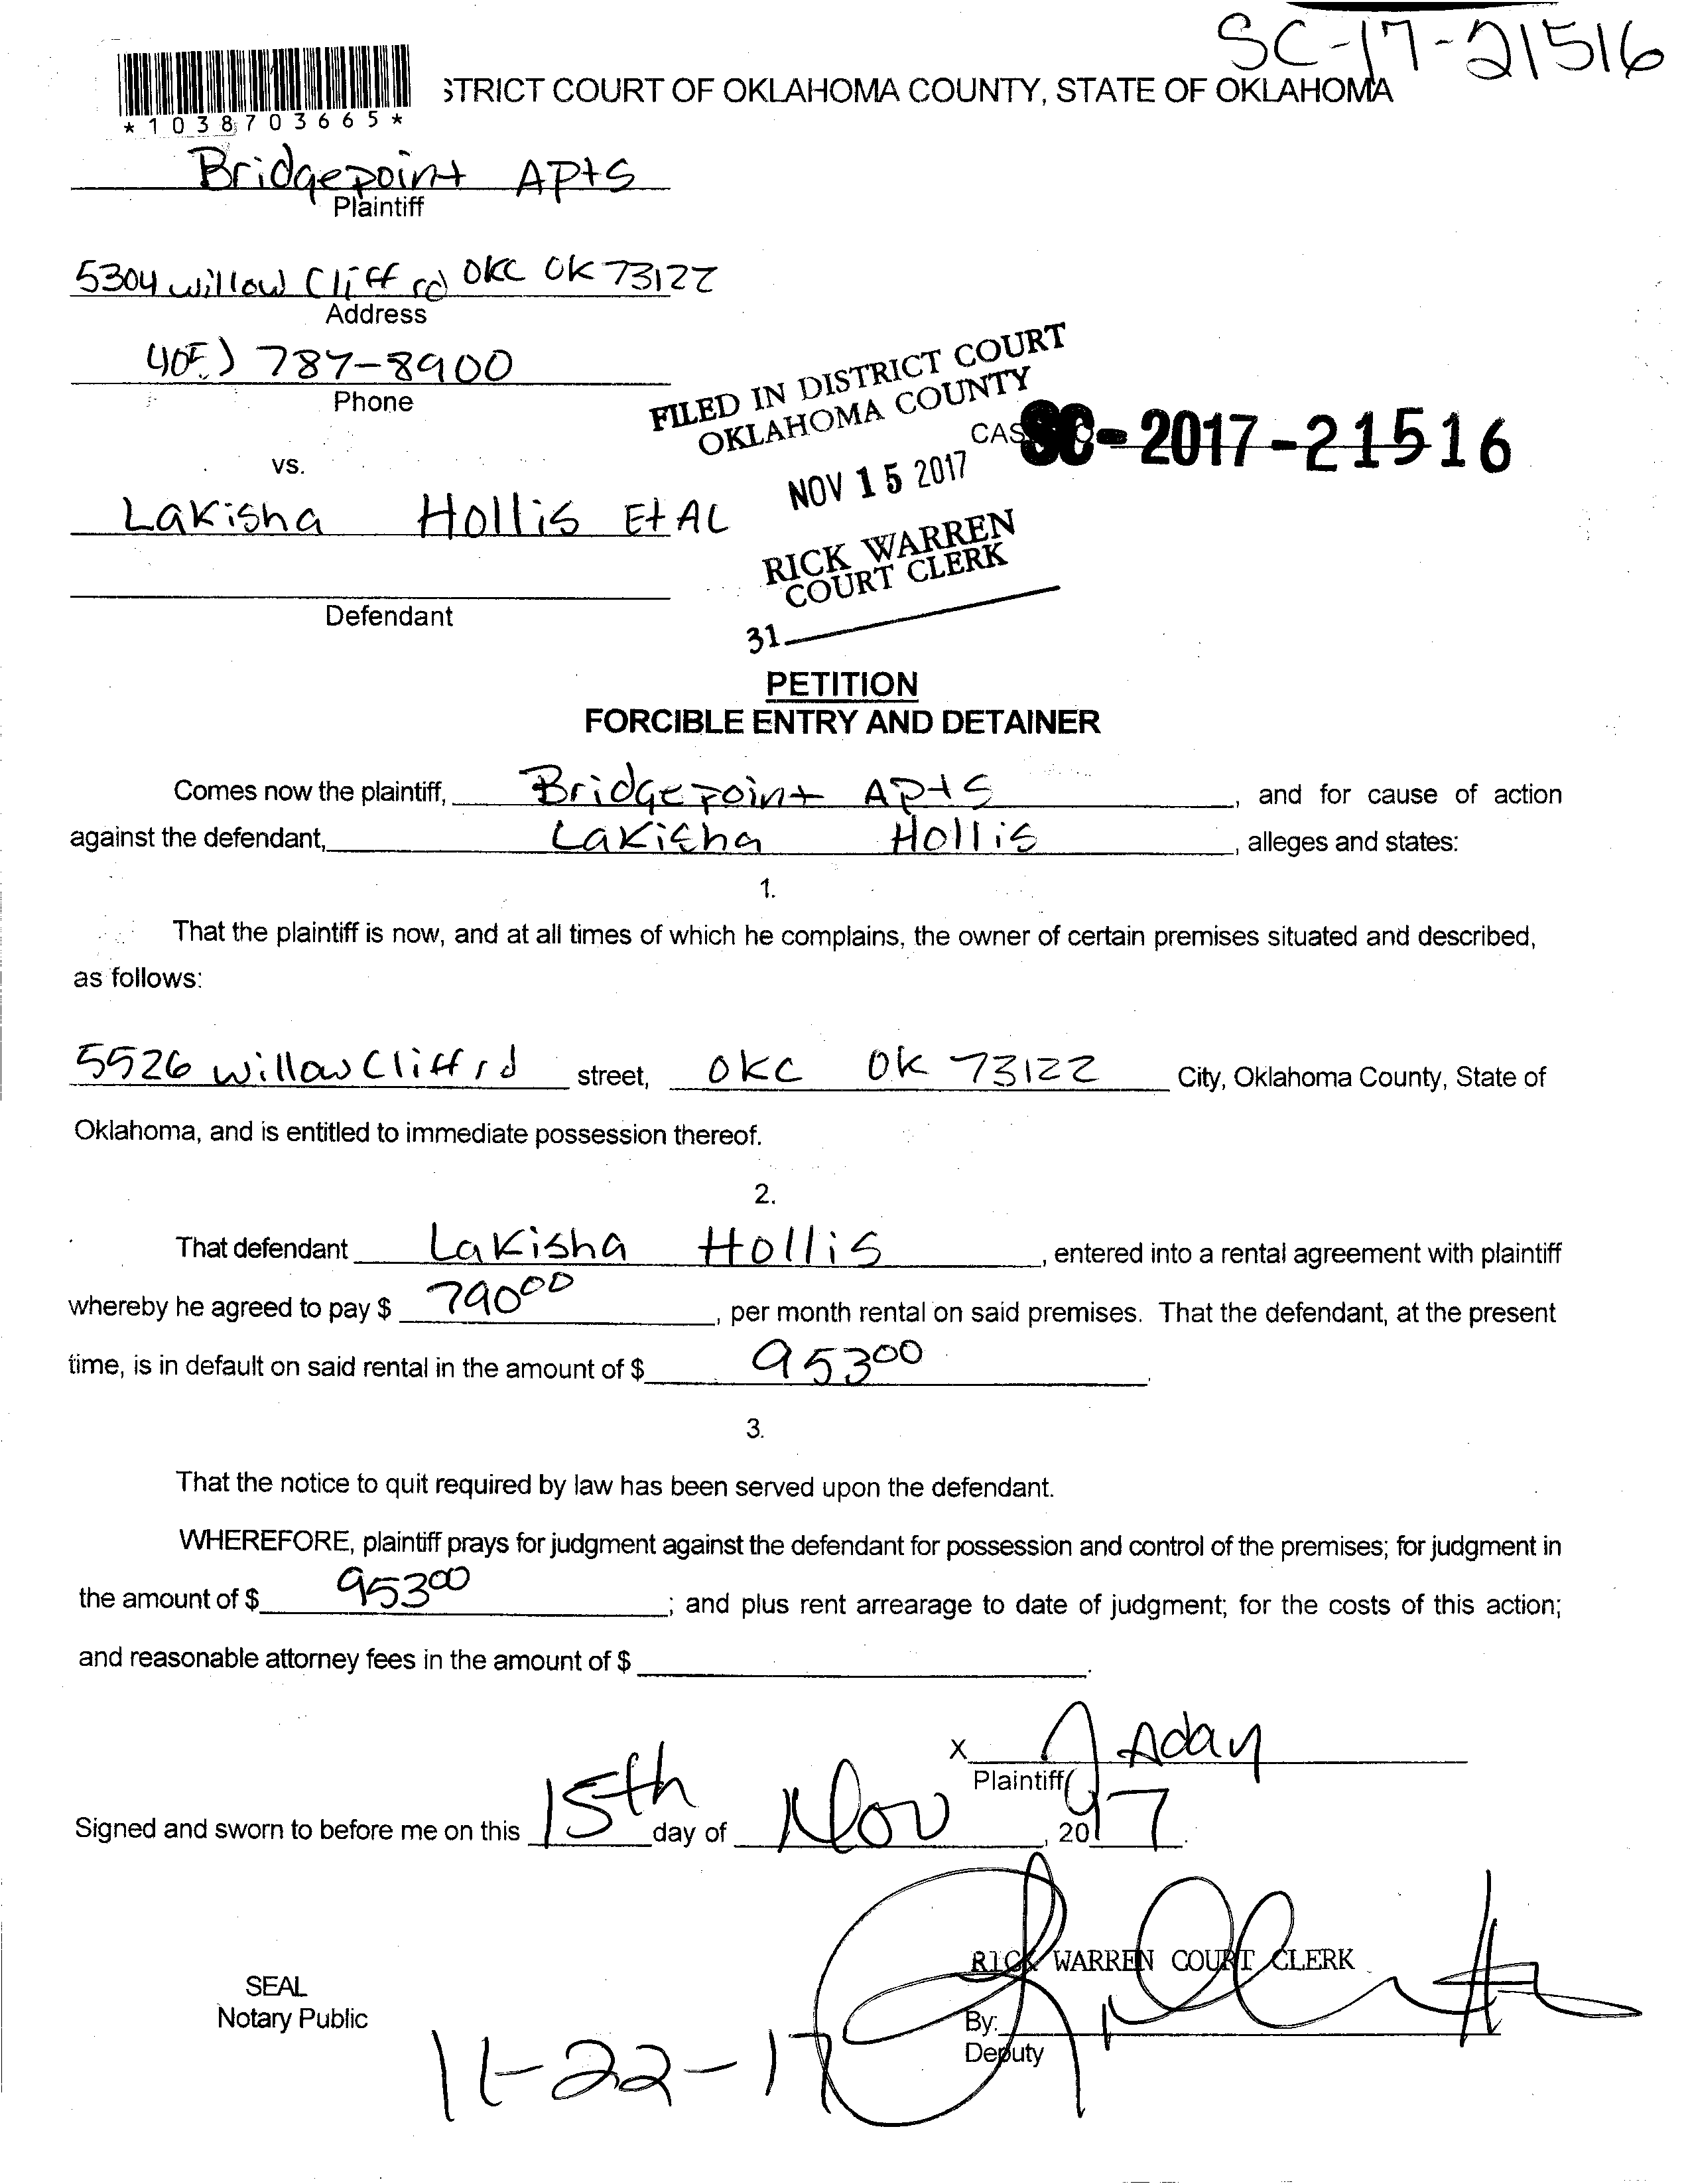 SC-17-21516
STRICT COURT OF OKLAHOMA COUNTY, STATE OF OKLAHOMA
*1038703665*
Bridgepoint Apts
Plaintiff
5304 willow Cliff rd OKC OK 73122
Address
405) 787-8900
Phone
FILED IN DISTRICT COURT
OKLAHOMA COUNTY
CAS SC-2017-21516
NOV 15 2017
vs.
Lakisha Hollis Et AL
RICK WARREN
COURT CLERK
Defendant
31
PETITION
FORCIBLE ENTRY AND DETAINER
Comes now the plaintiff, Bridgepoint Apts, and for cause of action
against the defendant, Lakisha Hollis, alleges and states:
1.
That the plaintiff is now, and at all times of which he complains, the owner of certain premises situated and described,
as follows:
5526 willow Cliff rd street, OKC OK 73122 City, Oklahoma County, State of
Oklahoma, and is entitled to immediate possession thereof.
2.
That defendant Lakisha Hollis, entered into a rental agreement with plaintiff
whereby he agreed to pay $ 790 00, per month rental on said premises. That the defendant, at the present
time, is in default on said rental in the amount of $ 953 00.
3.
That the notice to quit required by law has been served upon the defendant.
WHEREFORE, plaintiff prays for judgment against the defendant for possession and control of the premises; for judgment in
the amount of $ 953 00; and plus rent arrearage to date of judgment; for the costs of this action;
and reasonable attorney fees in the amount of $ .
X J Aday
Plaintiff
Signed and sworn to before me on this 15th day of Nov, 2017.
RICK WARREN COURT CLERK
SEAL
Notary Public
By:
Deputy
11-22-17